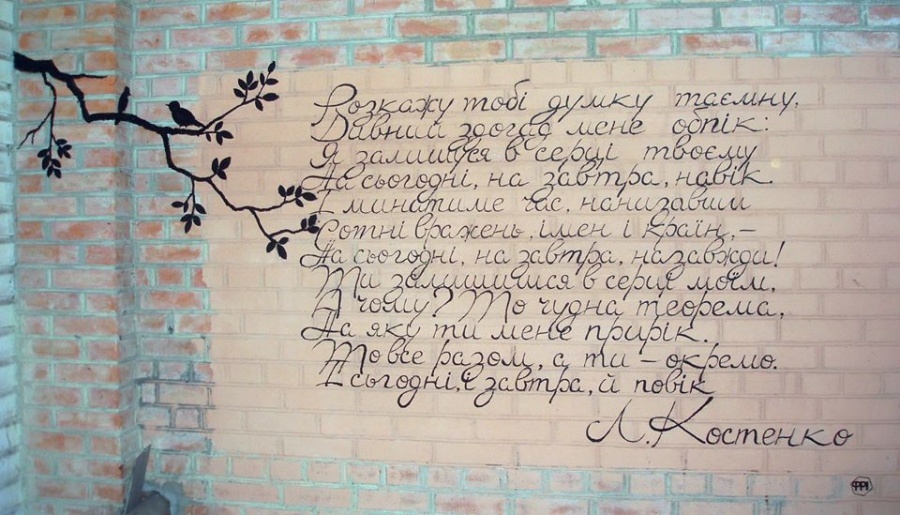 Розкажу тобі думку таємну,
Дивний здогад мене обпік:
Я залишуся в серці твоєму
На сьогодні, на завтра, навік.
І минатиме час, нанизавши
Сотні вражень, імен і країн,–
На сьогодні, на завтра, назавжди!
Ти залишишся в серці моїм.
А чому? То чудна теорема,
На яку ти мене прирік.
То все разом, а ти – окремо.
І сьогодні, і завтра, й повік
Л. Костенко